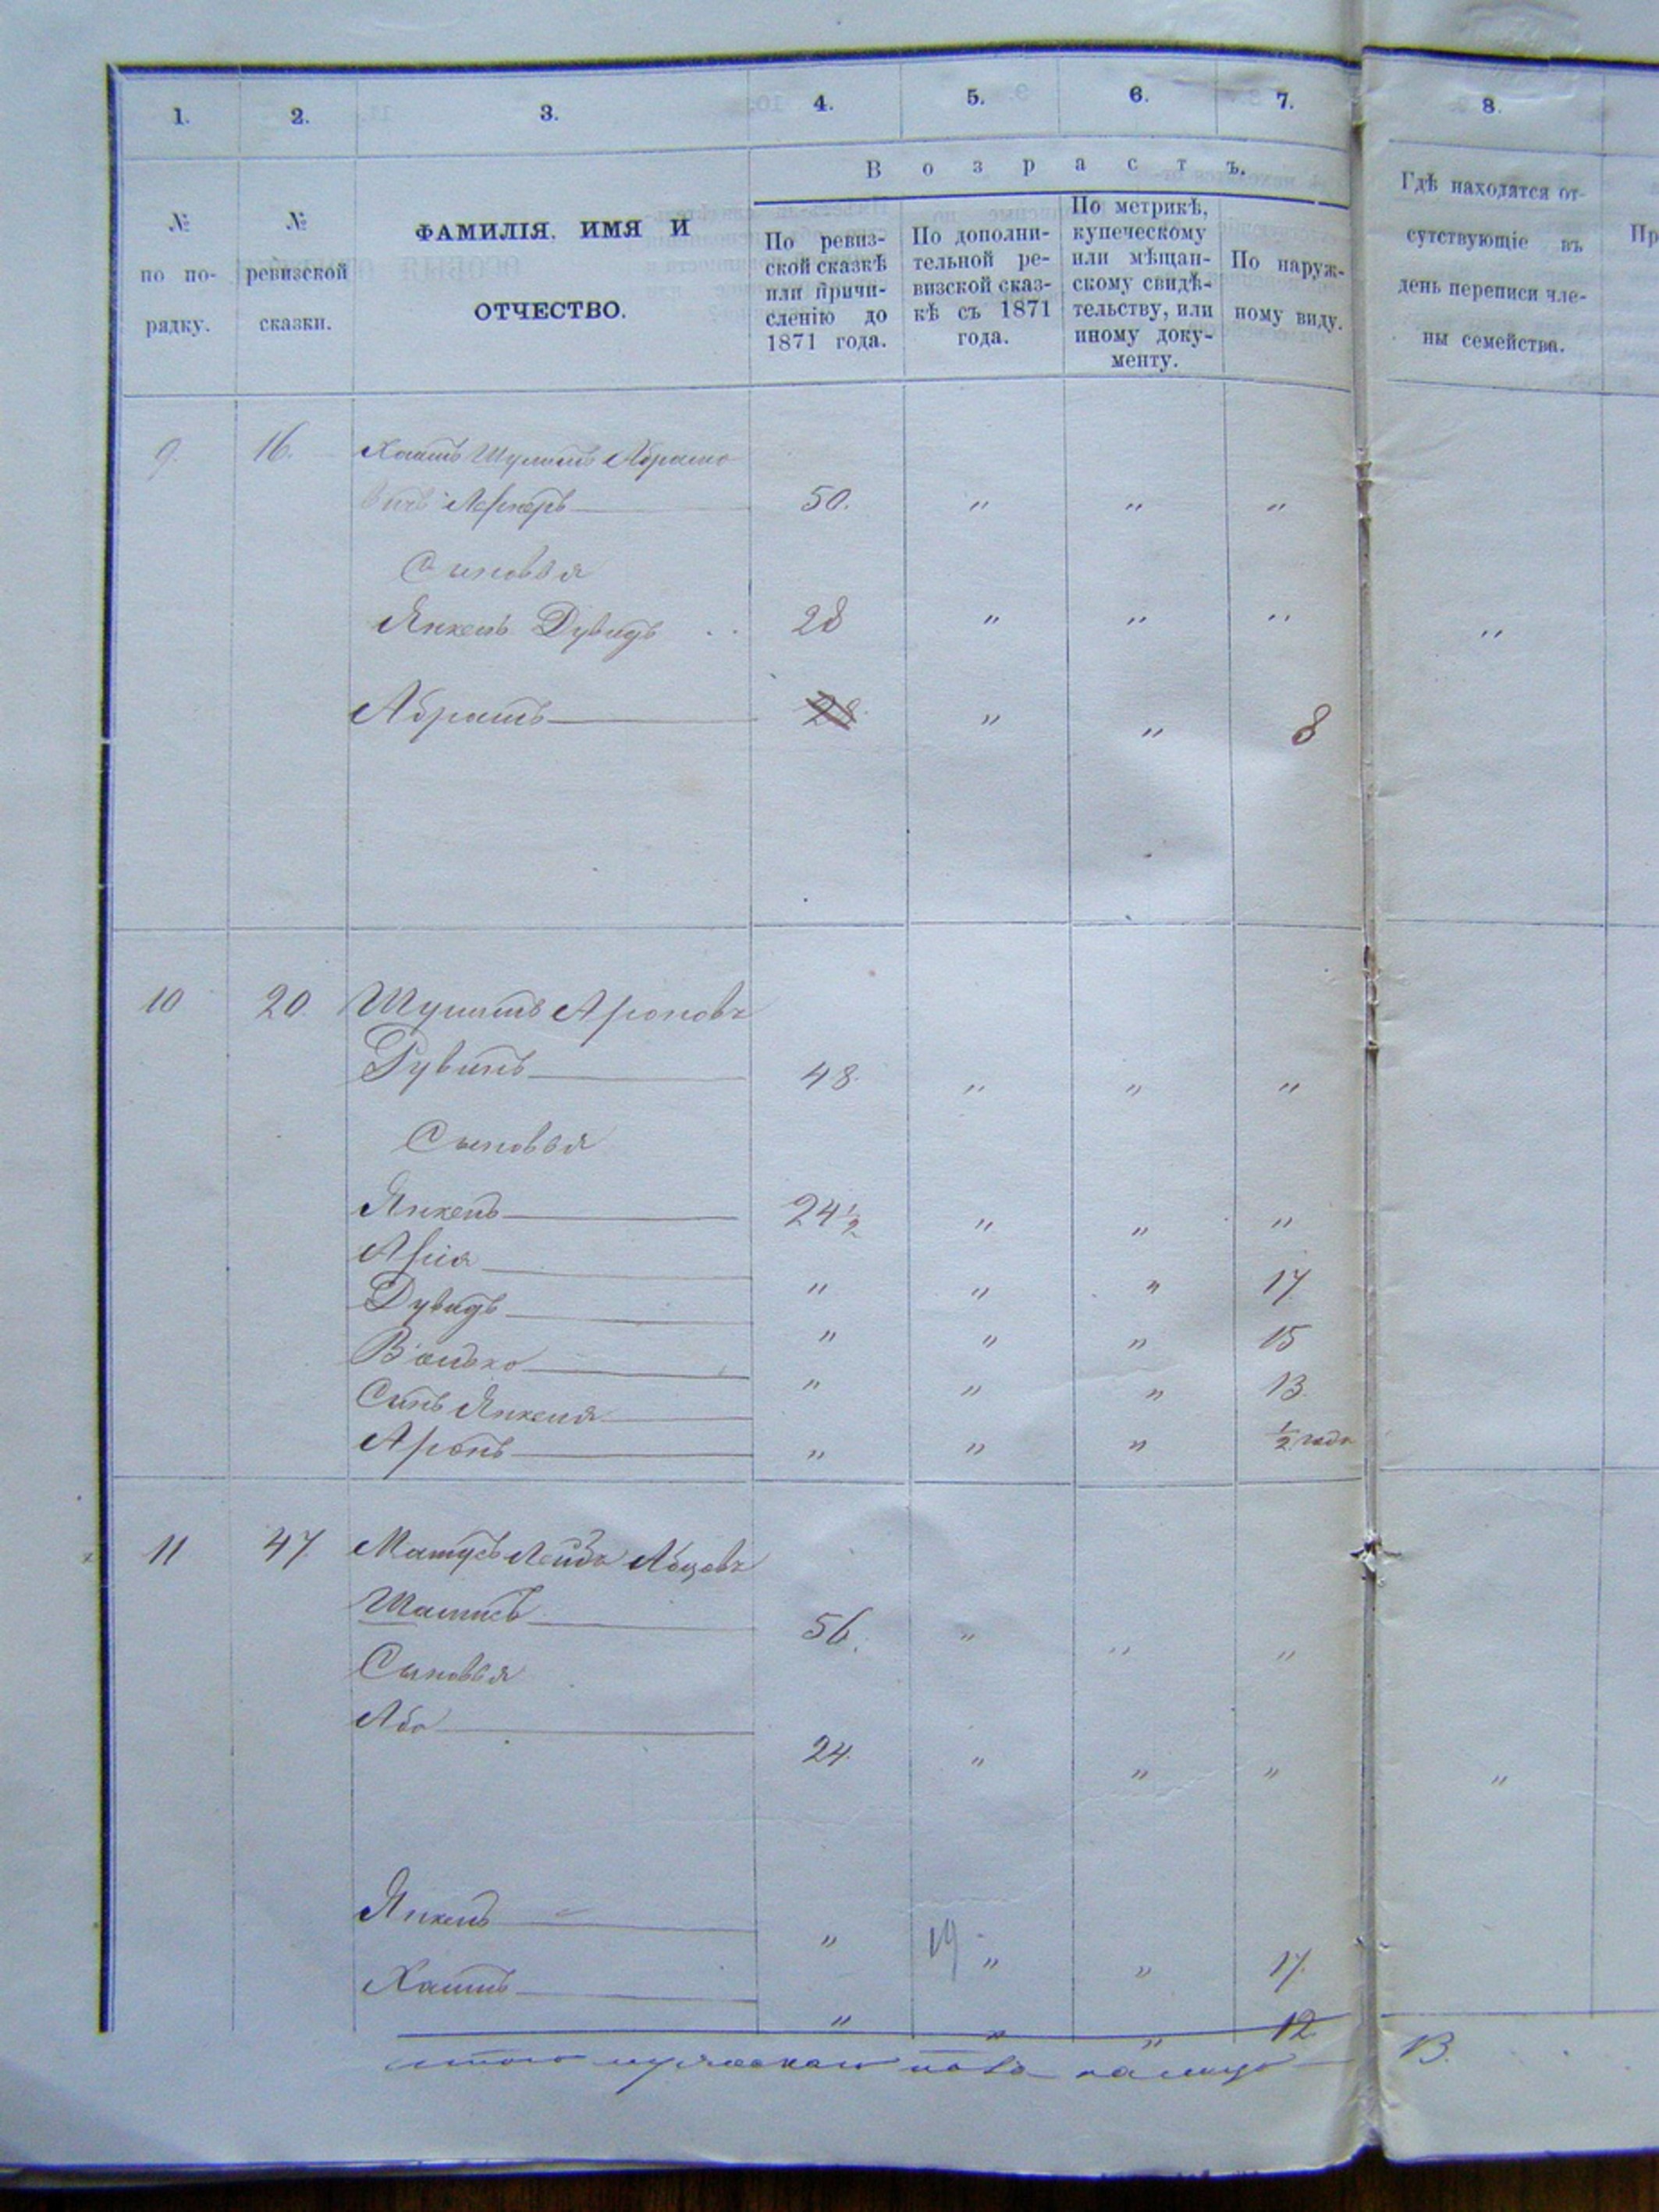 1. 2. 3. 4. 5. 6. 7. 8.
Возрастъ.
№ по по-рядку.
№ ревизской сказки.
ФАМИЛІЯ, ИМЯ И
ОТЧЕСТВО.
По ревиз-
ской сказкѣ
или причи-
сленію до
1871 года.
По дополни-
тельной ре-
визской сказ-
кѣ съ 1871
года.
По метрикѣ,
купеческому
или мѣщан-
скому свидѣ-
тельству, или
иному доку-
менту.
По наруж-
ному виду.
Гдѣ находятся от-
сутствующіе въ
день переписи чле-
ны семейства.
Пр
9. 16. Хаимъ Шулимъ Абрамо
вичъ 50. " " "
Сыновья
Янкель Дувидъ 28 " " " "
Абрамъ 28 " " 8
10 20. Шулимъ Ароновъ
Рувинъ 48. " " "
Сыновья
Янкель 24 1/2 " " "
" " " 17
Дувидъ " " " 15
" " " 13.
Сынъ Янкеля
Аронъ " " " 1/2 года
11 47. Матусъ Лейба Абовъ
56. " " "
Сыновья
Аба 24. " " " "
Янкель " 19 " " 17.
Хаимъ " " " 12
итого мужескаго пола налицо 13.